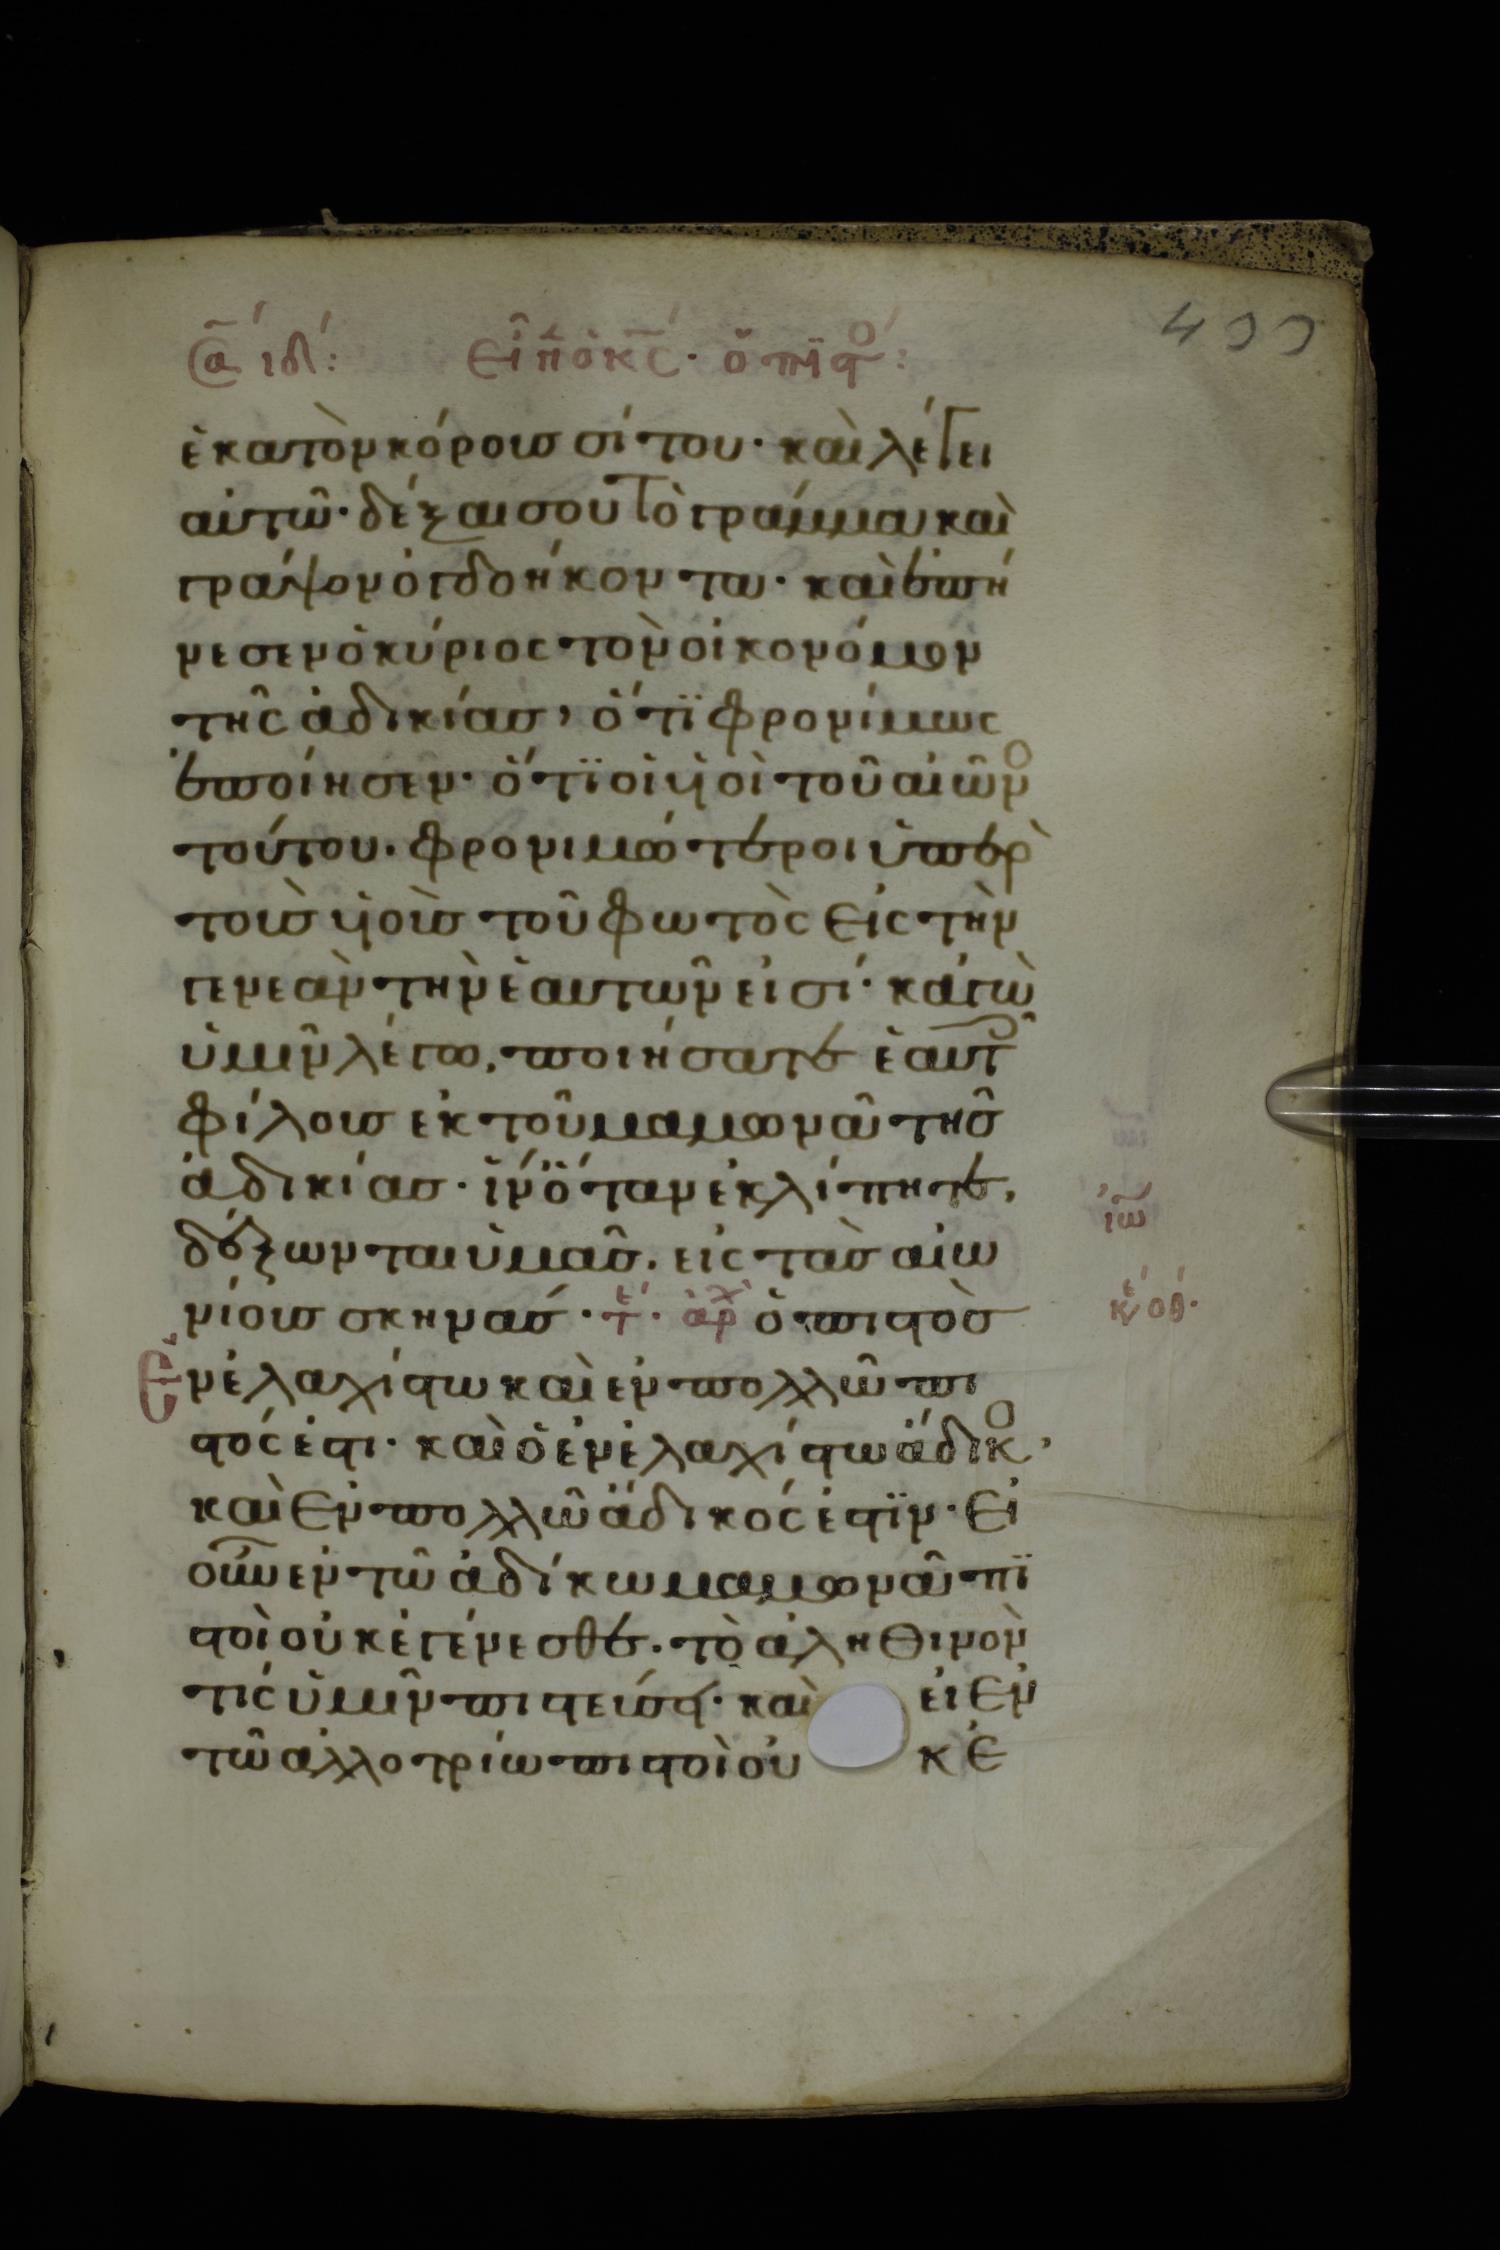 εἶπ ὁ κ̅ς̅· ὁ πιστὸ:
ἑκατὸν κόρους σίτου· καὶ λέγει
αὐτῶ· δέξαι σου τὸ γράμμα καὶ
γράψον ὀγδοήκοντα· καὶ ἐπή
νεσεν ὁ κύριος τὸν οἰκονόμον
τῆς ἀδικίας, ὅτϊ φρονίμως
ἐποίησεν· ὅτϊ οἱ υἱοὶ τοῦ αἰῶνο
τούτου. φρονιμώτεροι ὑπὲρ
τοὺς υἱοὺς τοῦ φωτὸς εἰς τὴν
γενεὰν τὴν ἑαυτῶν εἰσί· κἀγὼ
ὑμῖν λέγω, ποιήσατε ἑαυτ
φίλους ἐκ τοῦ μαμωνᾶ τῆς
ἀδικίας· ἵν ὅταν ἐκλίπητε,
δέξωνται ὑμᾶς. εἰς τὰς αἰω
νίους σκηνάς· τε· ἀρχ ὁ πιστὸς
Ἐν ἐλαχίστω καὶ ἐν πολλῶ πι
στός ἐστι· καὶ ὁ ἐν ἐλαχίστω ἄδικο,
καὶ ἐν πολλῶ ἄδικός ἐστϊν· εἰ
οὖν ἐν τῶ ἀδίκω μαμωνᾶ πϊ
στοὶ οὐκ ἐγένεσθε. τὸ ἀληθινὸν
τίς ὑμῖν πιστεύσει· καὶ εἰ ἐν
τῶ ἀλλοτρίω πιστοὶ οὐκ ἐ